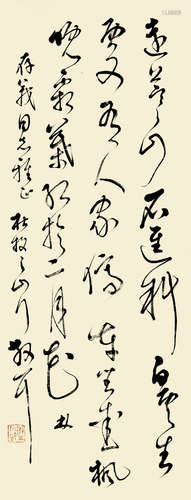 遠上寒山石逕斜白雲生
處有人家停車坐愛楓
晚霜葉紅於二月花 林
存義同志雅正 杜牧之山行